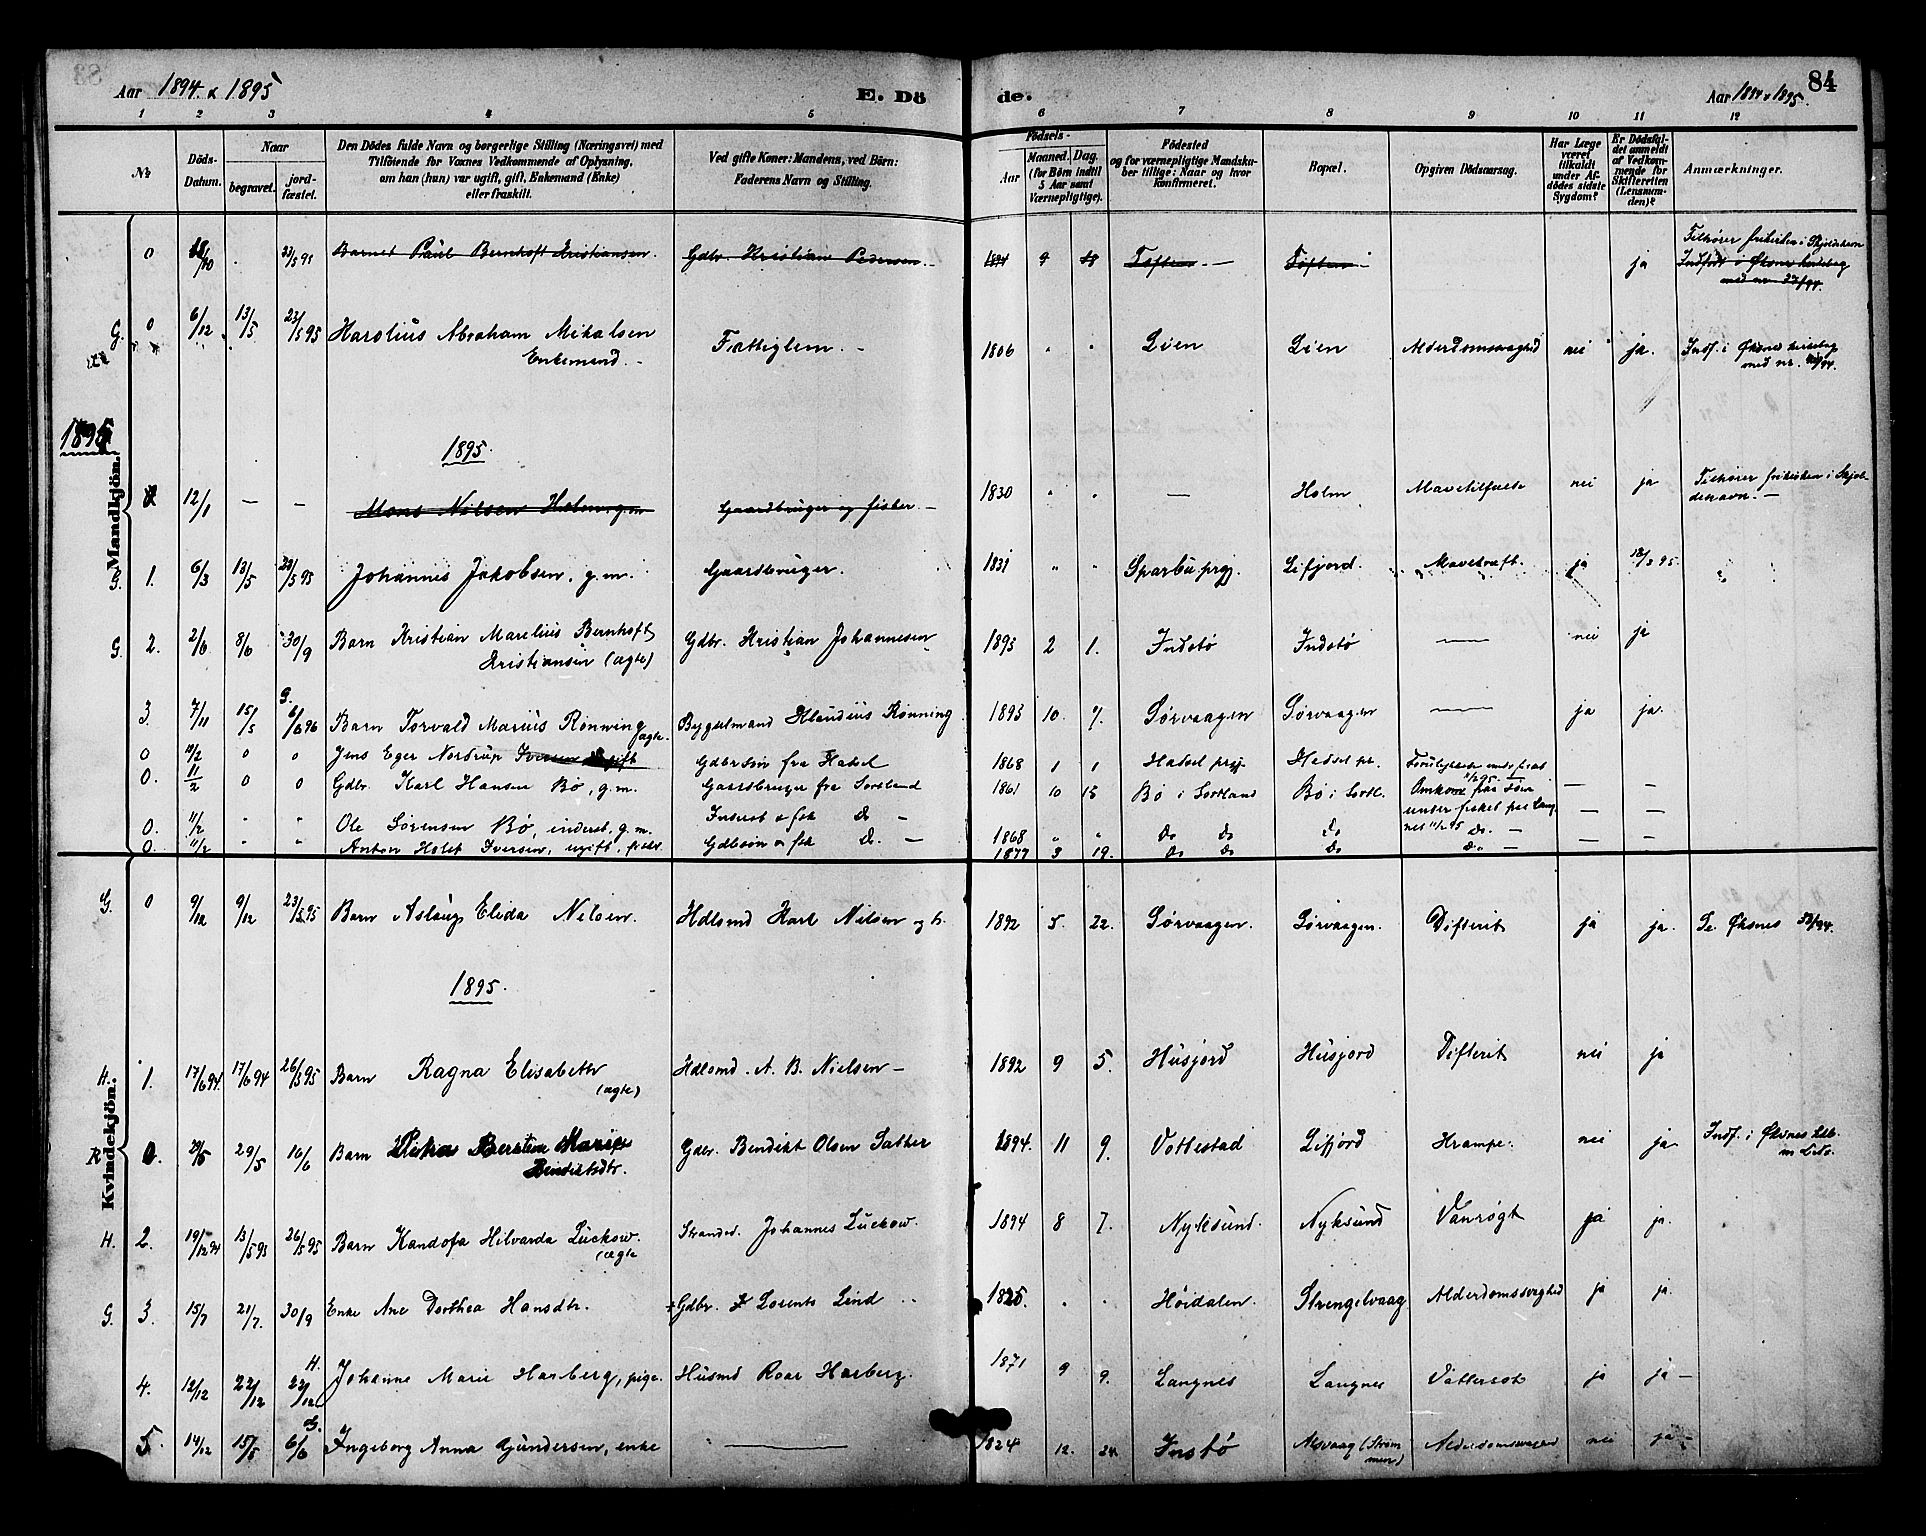 Aar 1894 & 1895
E. Dö
de.
Aar 1894 & 1895.
84
1 2 3 4 5 6 7 8 9 10 11 12
No
Döds-Datum.
Naar
begravet.
jord-fæstet.
Den Dödes fulde Navn og borgerlige Stilling (Næringsvei) med
Tilföiende for Voxnes Vedkommende af Oplysning,
om han (hun) var ugift, gift, Enkemand (Enke)
eller fraskilt.
Ved gifte Koner: Mandens, ved Börn:
Faderens Navn og Stilling.
Födsels-
Aar
Maaned.
Dag.
(for Börn indtil
5 Aar samt
Værnepligtige).
Födested
og for værnepligtige Mandska-
ber tillige: Naar og hvor
konfirmeret.
Bopæl.
Opgiven Dödsaarsag.
Har Læge
været
tilkaldt
under Af-
dödes sidste
Sygdom?
Er Dödsfal-
det anmeldt
af Vedkom-
mende for
Skifteretten
(Lensman-
den)?
Anmærkninger.
0 Barnet Paul Bernhoft Kristiansen. Gdbr. Kristian Pedersen. 1894 9 Toften Toften ja Tilhører frikirken i Skjoldehavn
G. 0 6/12 13/5 23/5 95 Harolius Abraham Mikalsen Fattiglem. 1806 " " Lien Lien Alderdomssvaghed nei ja. Indf. i Øksnes kirkebog
Enkemand. med nr.
1895
Mandkjön.
1895.
12/1 — — Mons Nilsen Holm g.m. Gaardbruger og fisker. 1830 " " — Holm Mavetilfælde nei ja Tilhører frikirken i Skjol-
dehavn.
G. 1. 6/3 13/5 23/5 95 Johannes Jakobsen, g.m. Gaardbruger. 1831 " " Sparbu prgj. Lifjord. Mavekræft. ja 18/3 95.
G. 2. 2/6 8/6 30/9 Barn Kristian Marelius Bernhoft Gdbr. Kristian Johannesen 1893 2 1. Indstø Indstø — nei ja
Kristiansen (ægte)
3. 7/11 15/5 G. 6/6 96 Barn Torvald Marius Rønning ægte. Bygselmand Klaudius Rønning 1893 10. 7. Sørvaagen Sørvaagen — ja ja.
0 10/2 0 0 Jens Eger Nordrup Iversen ugift Gdbrsøn fra Hadsel 1868 1 1 Hadsel prgj. Hadsel pr. Forulykkede under fiskeri
11/2 95.
0. 11/2 0 0 Gdbr. Karl Hansen Bø, g.m. Gaardbruger fra Sortland 1861 10 15 Bø i Sortland Bø i Sortl. Omkom paa søen — —
under fiskeri
0. 11/2 " " Ole Sørensen Bø, inderst, g.m. Inderst & fisk Do 1868 " " Do Do Do 11/2 95 Do. — —
0. 11/2 " " Anton Holst Iversen, ugift, fisker Gdbsøn & fisk Do. 1877 3 19. Do Do Do Do. — —
G. 0 9/12 9/12 23/5 95 Barn Aslaug Elida Nilsen. Hdlsmd Karl Nilsen og h. 1892 5. 22. Sørvaagen. Sørvaagen. Difterit ja ja. Se Øksnes 53/94.
1895.
Kvindekjön.
H. 1. 17/6 94. 17/6 94 26/5 95 Barn Ragna Elisabeth Hdlsmd. A. B. Nielsen — 1892 9 5. Husjord Husjord Difterit nei ja
(ægte)
R 0. 29/5 10/6 Barn Petra Marie Gdbr. Bendikt Olsen Sather 1894. 11 9. Vottestad Lifjord Krampe. nei ja Indf. i Øksnes
Bendiktsdtr.
H. 2. 19/12 94 13/5 95 26/5 95 Barn Kandofa Hilvarda Luckow. Strandsd. Johannes Luckow. 1894 8 7. Nyksund. Nyksund Vanrøgt ja ja.
(ægte
G. 3. 15/7 21/7. 30/9 Enke Ane Dorthea Hansdtr. Gdbr. Lorents Lind 1825. " " Høidalen. Strengelvaag Alderdomssvaghed ja ja.
4. 12/12 22/12 H. 22/12 Johanne Marie Harberg, pige. Husmd Roar Harberg. 1871 9 9. Langnes Langnes Vattersot ja ja —
5. 14/12 15/5 G. 6/6 Ingeborg Anna Gundersen, enke — 1824 12. 24. Instø Alsvaag (Strøm Alderdomssvaghed nei ja —
men)